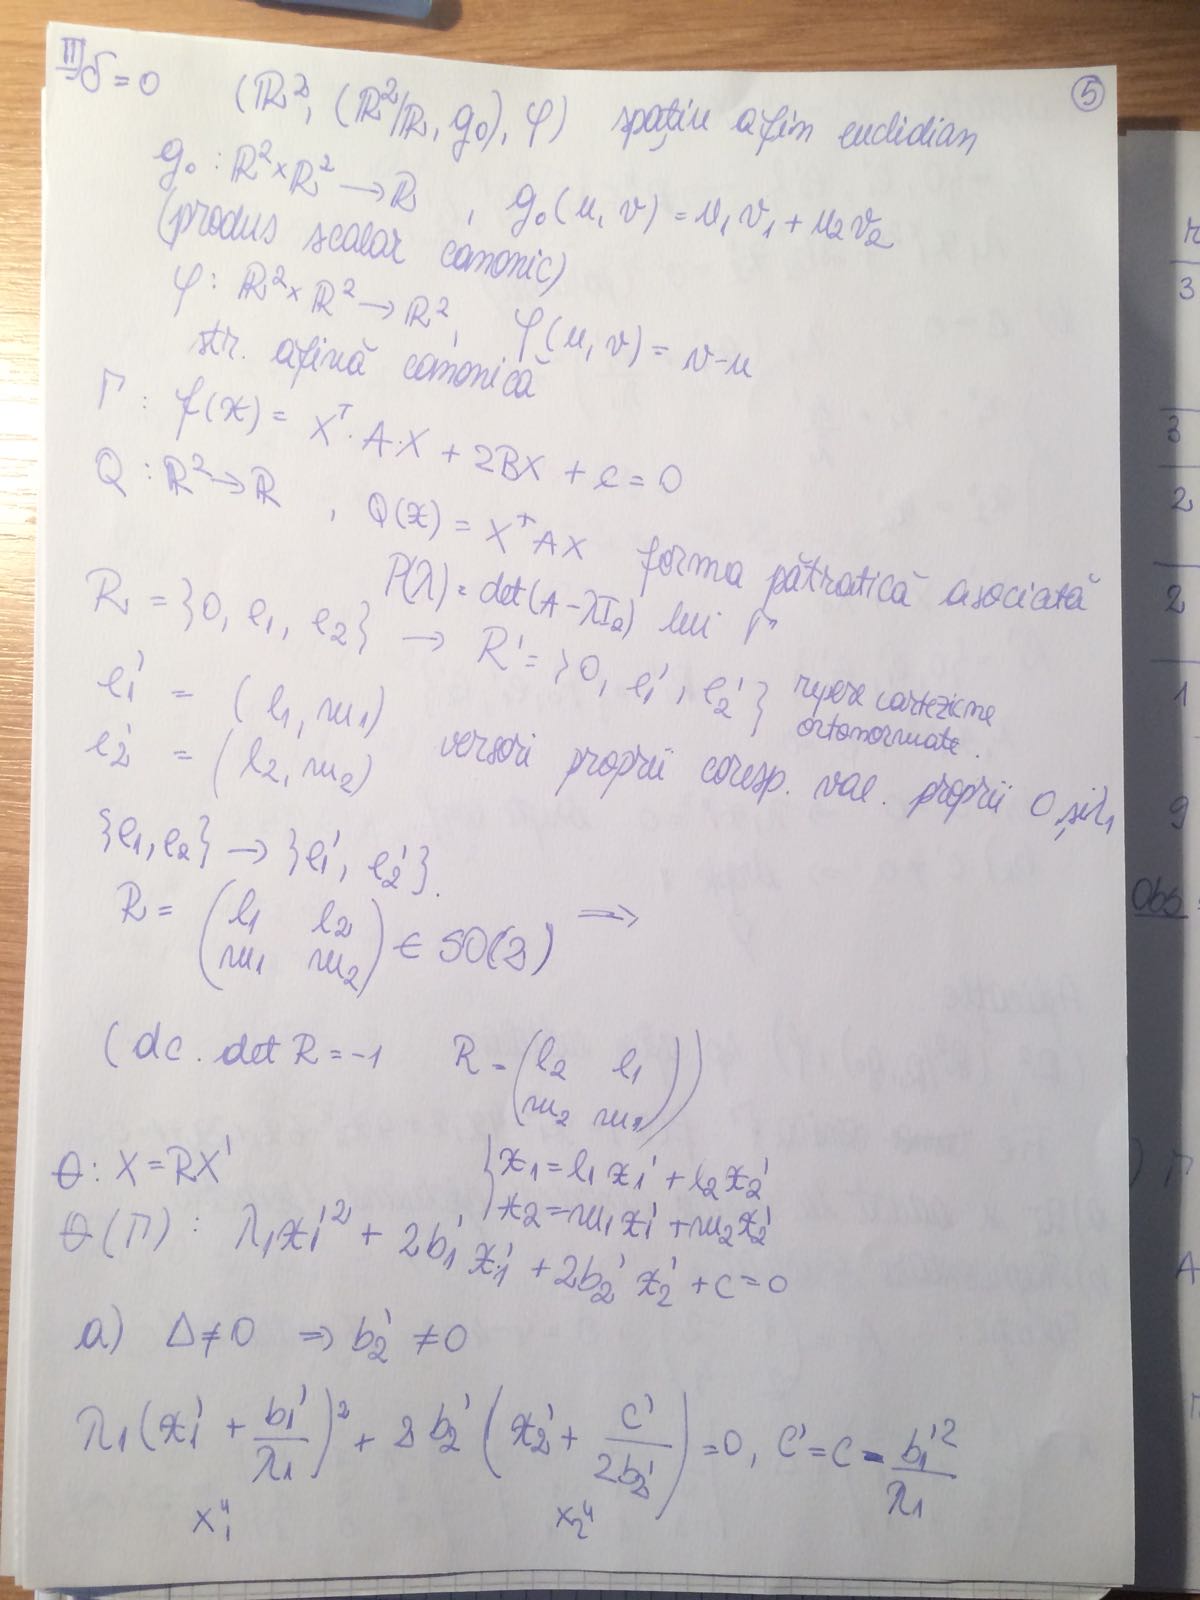 III) δ=0
(ℝ², (ℝ²/ℝ, g₀), φ) spațiu afin euclidian
⑤
g₀ : ℝ²×ℝ² → ℝ , g₀(u, v) = u₁v₁ + u₂v₂
(produs scalar canonic)
φ : ℝ²×ℝ² → ℝ², φ(u, v) = v-u
str. afină canonică
Γ : f(x) = Xᵀ·A·X + 2BX + c = 0
Q : ℝ² → ℝ , Q(x) = XᵀAX forma pătratică asociată
P(λ) = det(A-λI₂) lui Γ
R = {0, e₁, e₂} → R' = {0, e₁', e₂'} repere carteziene
ortonormate.
e₁' = (l₁, m₁)
e₂' = (l₂, m₂) versori proprii coresp. val. proprii 0 și λ₁
{e₁, e₂} → {e₁', e₂'}.
R = (l₁ l₂
m₁ m₂) ∈ SO(2) ⟹
(dc. det R = -1 R = (l₂ l₁
m₂ m₁))
θ : X = RX' {x₁ = l₁x₁' + l₂x₂'
x₂ = m₁x₁' + m₂x₂'
θ(Γ) : λ₁x₁'² + 2b₁'x₁' + 2b₂'x₂' + c = 0
a) Δ≠0 ⇒ b₂' ≠ 0
λ₁(x₁' + b₁'/λ₁)² + 2b₂'(x₂' + c'/2b₂') = 0, c' = c - b₁'²/λ₁
x₁'' x₂''
3
3
2
2
1
9
Obs
Γ
A